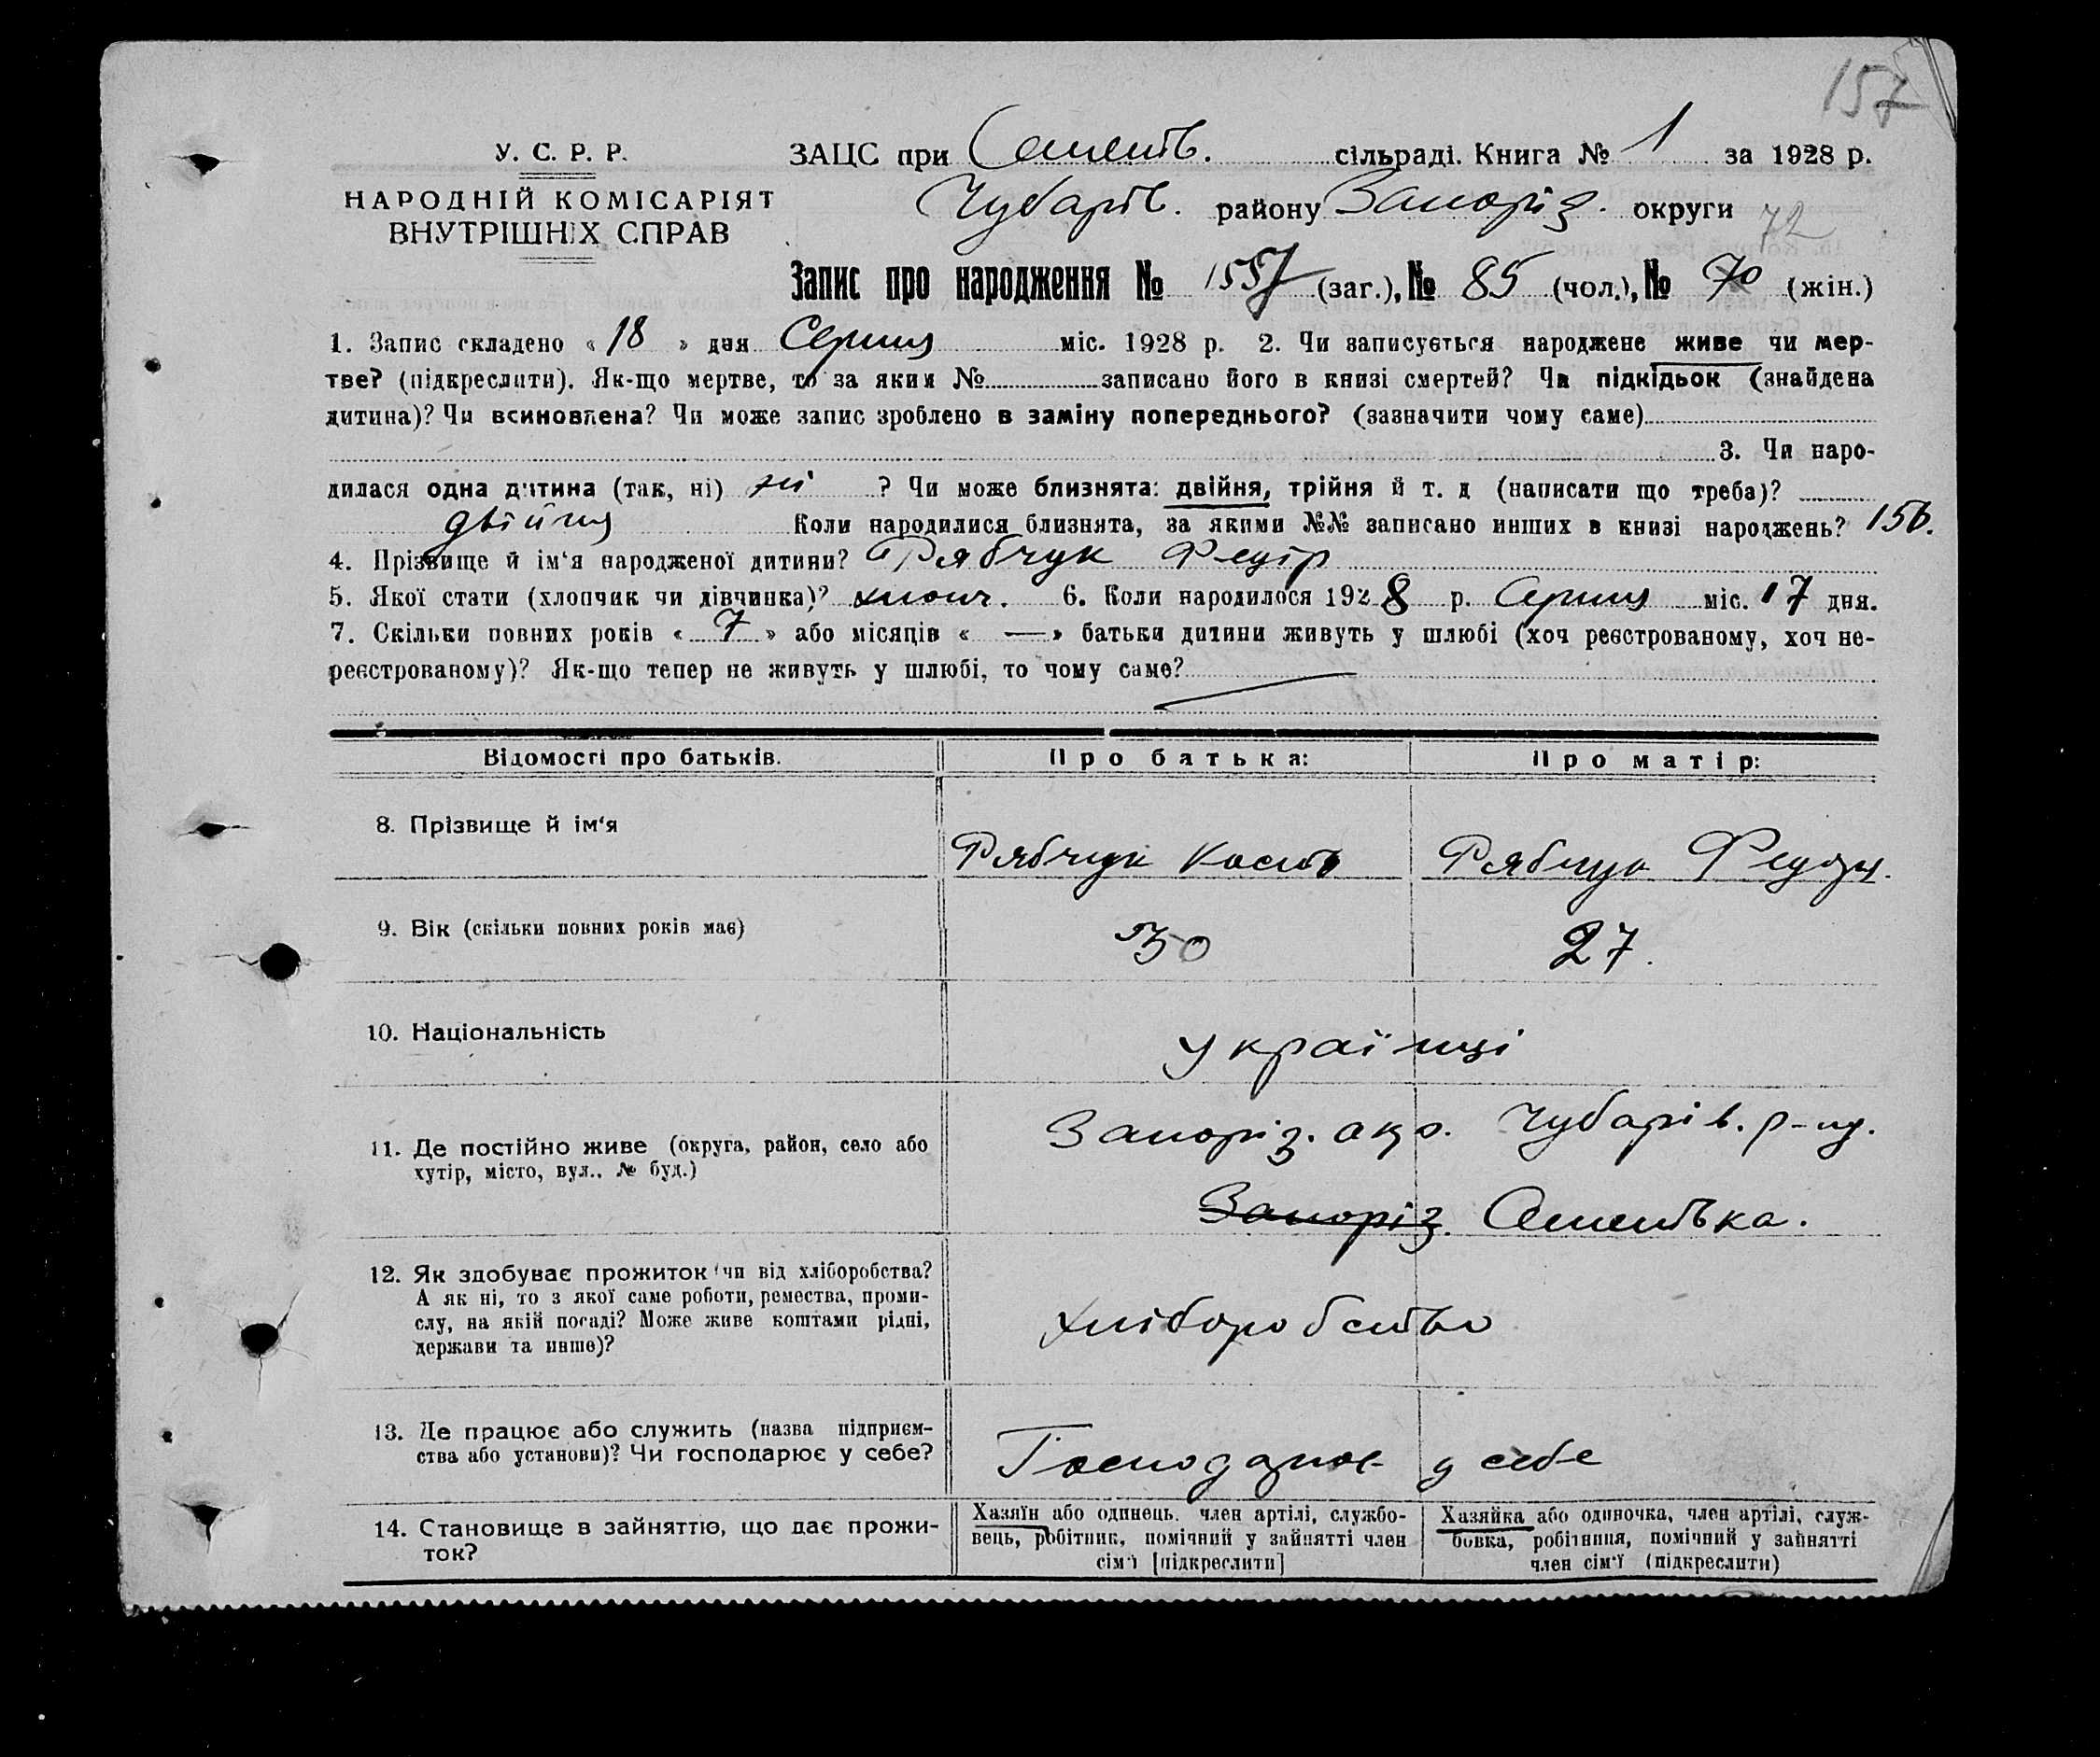 157
У. С. Р. Р.
НАРОДНІЙ КОМІСАРІЯТ
ВНУТРІШНІХ СПРАВ
ЗАЦС при Семенів. сільраді. Книга № 1 за 1928 р.
Чубарів. району Запоріз. округи
72
Запис про народження № 157 (заг.), № 85 (чол.), № 70 (жін.)
1. Запис складено « 18 » дня Серпня міс. 1928 р. 2. Чи записується народжене живе чи мер-
тве? (підкреслити). Як-що мертве, то за яким № записано його в книзі смертей? Чи підкідьок (знайдена
дитина)? Чи всиновлена? Чи може запис зроблено в заміну попереднього? (зазначити чому саме)
3. Чи наро-
дилася одна дитина (так, ні) ні ? Чи може близнята: двійня, трійня й т. д (написати що треба)?
двійня Коли народилися близнята, за якими №№ записано инших в книзі народжень? 156.
4. Прізвище й ім‘я народженої дитини? Рябчук Федір
5. Якої стати (хлопчик чи дівчинка)? хлопч. 6. Коли народилося 1928 р. Серпня міс. 17 дня.
7. Скільки повних років « 7 » або місяців « — » батьки дитини живуть у шлюбі (хоч реєстрованому, хоч не-
реєстрованому)? Як-що тепер не живуть у шлюбі, то чому саме?
Відомості про батьків. Про батька: Про матір:
8. Прізвище й ім‘я
Рябчук Кость Рябчук
9. Вік (скільки повних років має) 30 27.
10. Національність українці
11. Де постійно живе (округа, район, село або
хутір, місто, вул.. № буд.)
Запоріз. окр. Чубарів. р-ну.
Запоріз. Семенівка.
12. Як здобуває прожиток (чи від хліборобства?
А як ні, то з якої саме роботи, ремества, проми-
слу, на якій посаді? Може живе коштами рідні,
держави та инше)?
хліборобство
13. Де працює або служить (назва підприєм-
ства або установи)? Чи господарює у себе?
Господарює у себе
14. Становище в зайняттю, що дає прожи-
ток?
Хазяїн або одинець. член артілі, службо-
вець, робітник, помічний у зайнятті член
сім‘ї [підкреслити]
Хазяйка або одиночка, член артілі, служ-
бовка, робітниця, помічний у зайнятті
член сім‘ї (підкреслити)